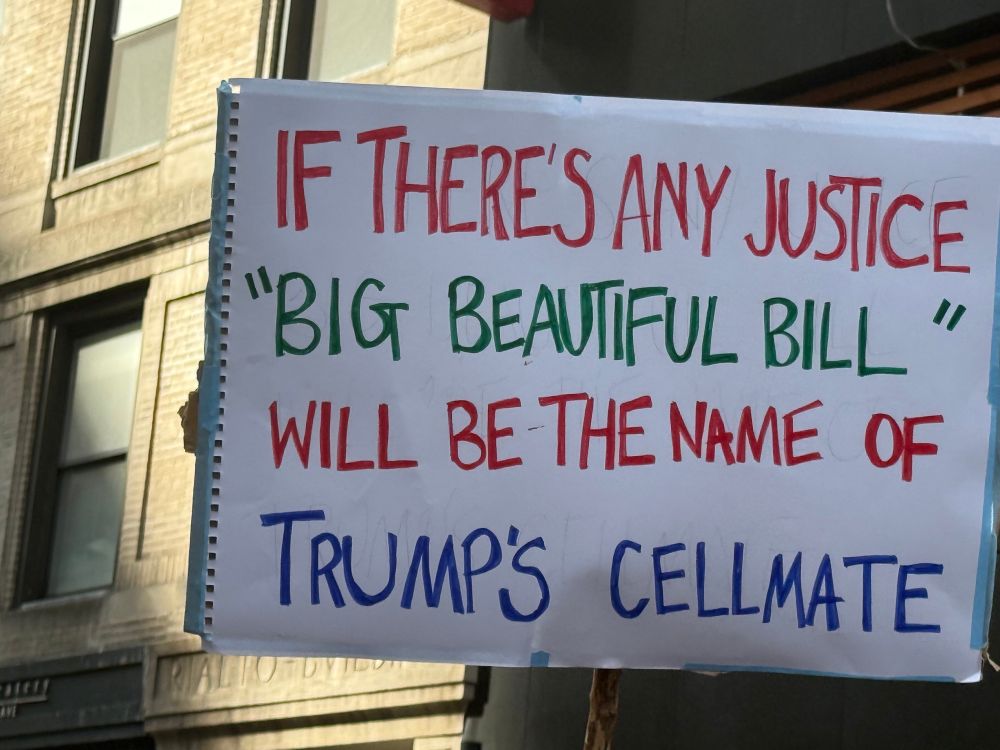 IF THERE'S ANY JUSTICE
"BIG BEAUTIFUL BILL"
WILL BE THE NAME OF
TRUMP'S CELLMATE
RIALTO-BUILDI